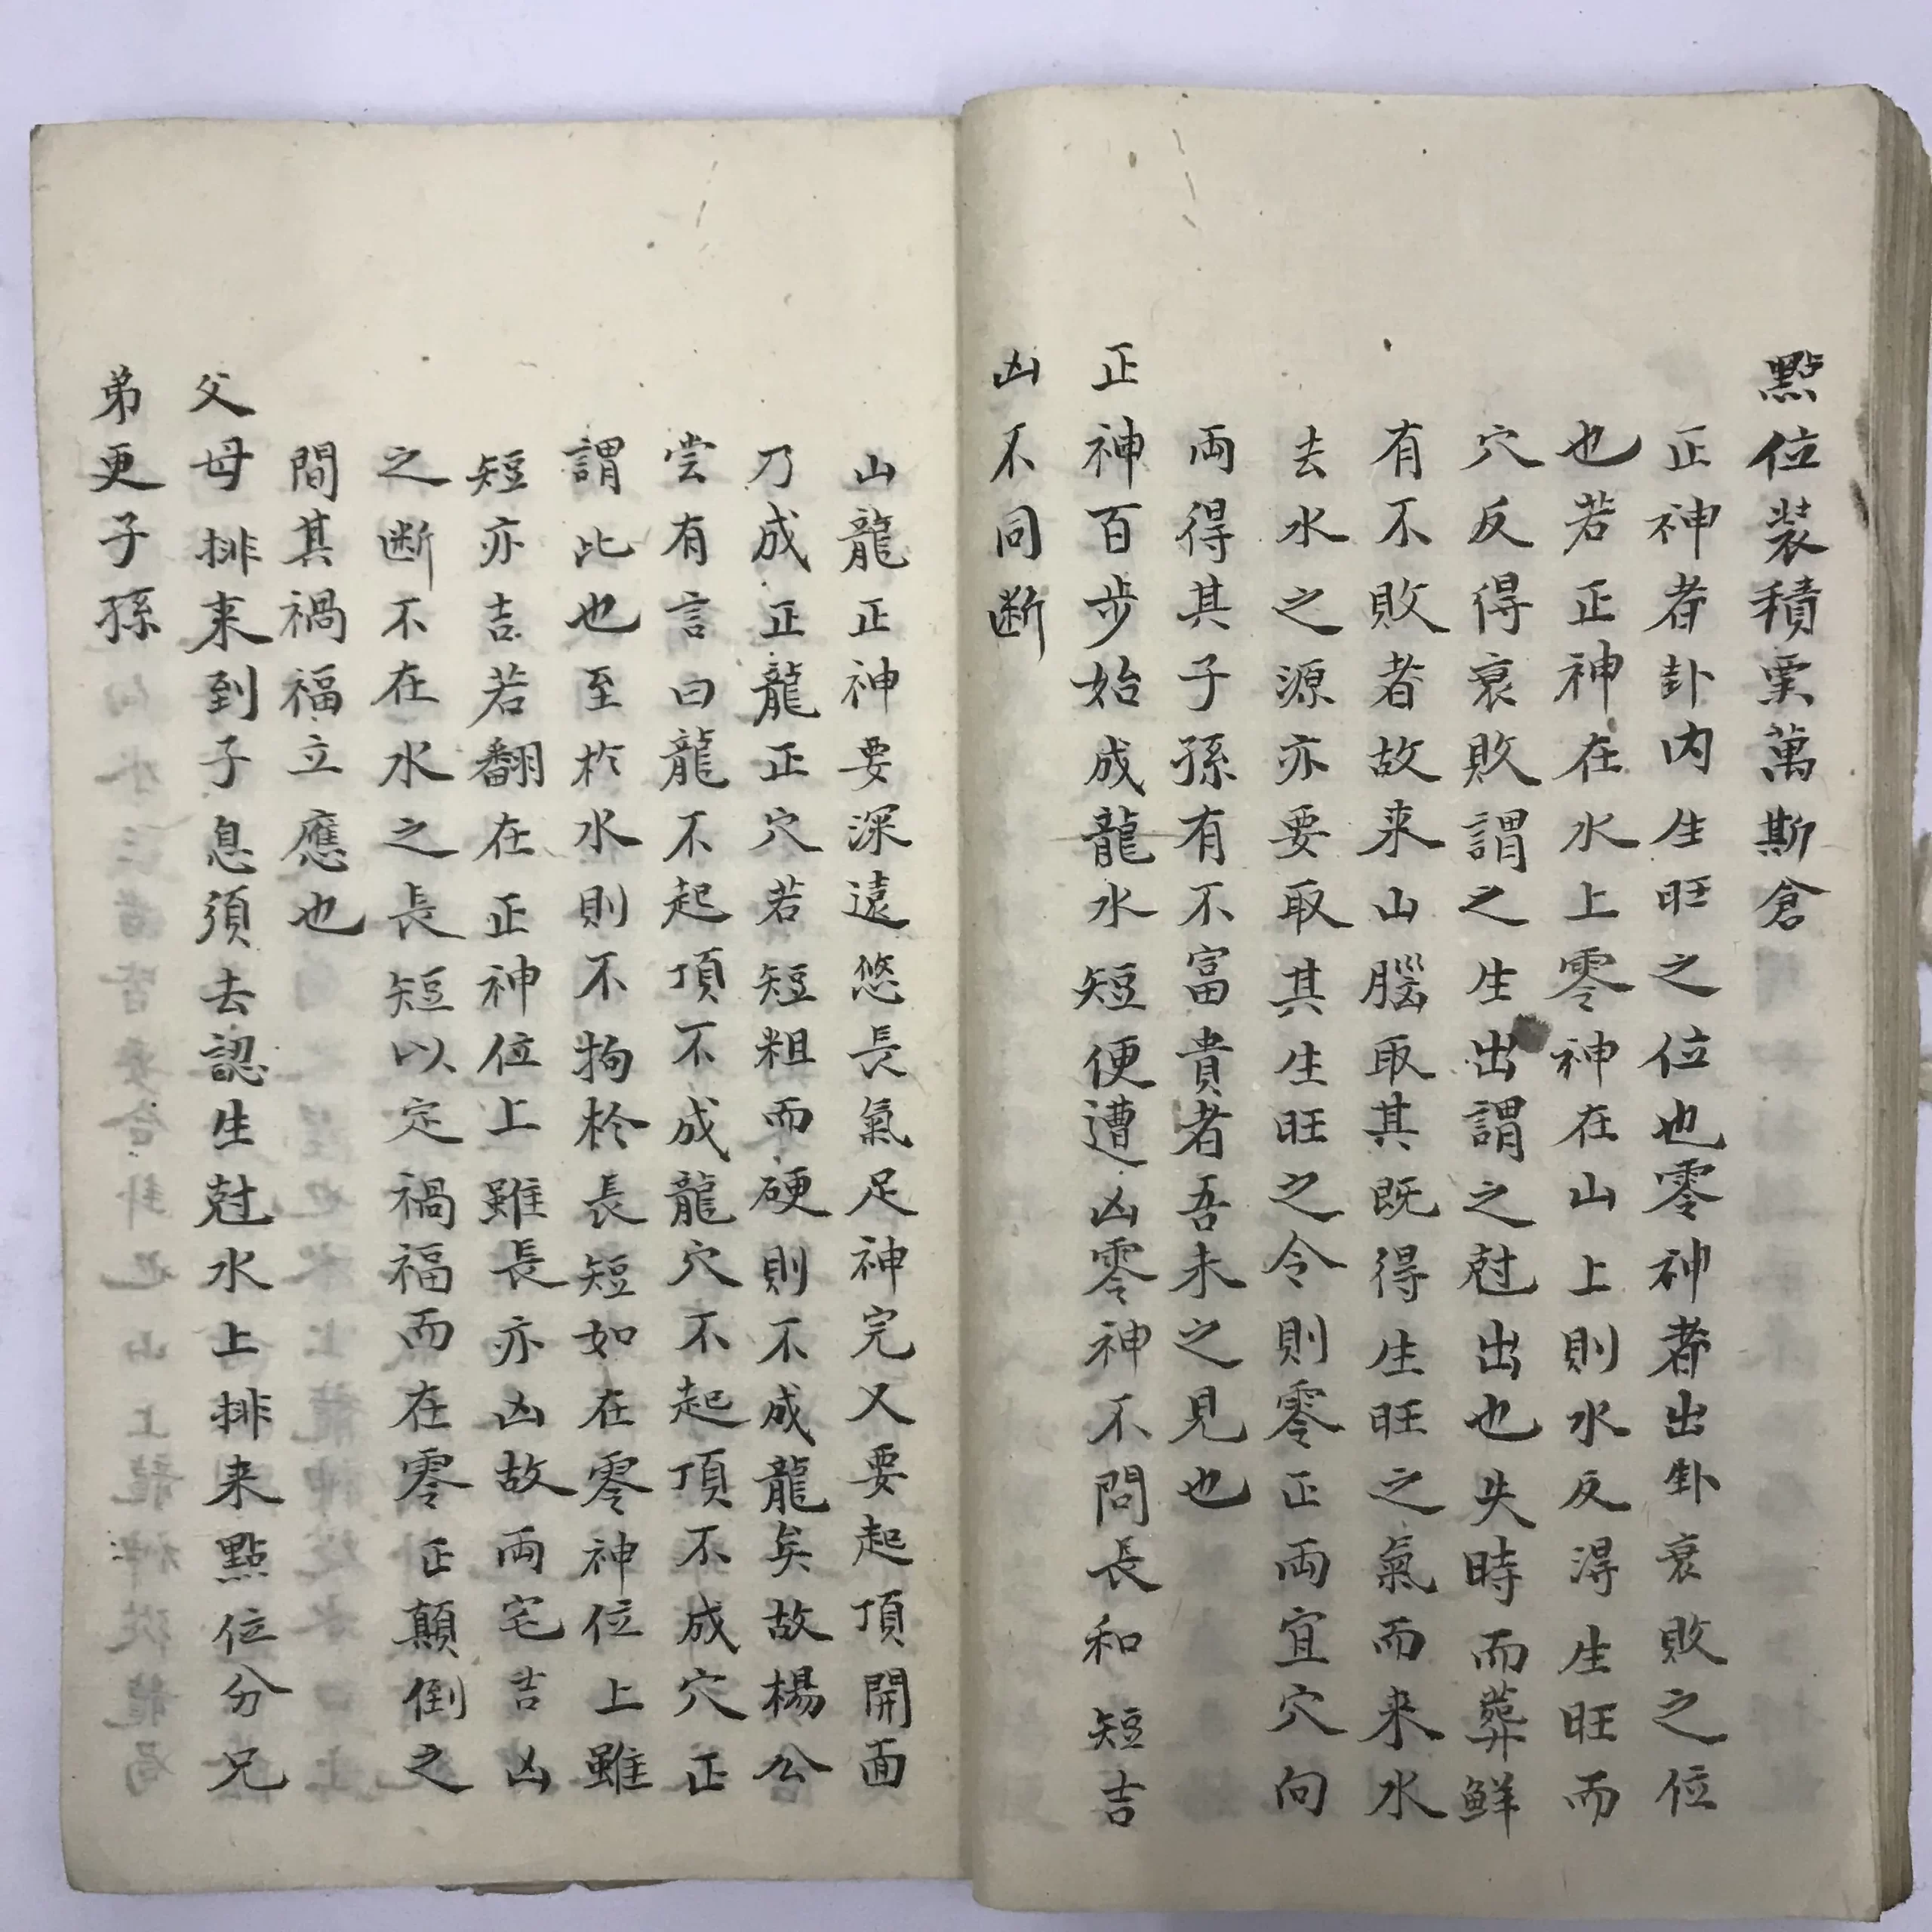 點位裝積粟萬斯倉
正神者卦内生旺之位也零神者出卦衰敗之位
也若正神在水上零神在山上則水反淂生旺而
穴反得衰敗謂之生出謂之尅出也失時而葬鮮
有不敗者故来山腦取其既得生旺之氣而来水
去水之源亦要取其生旺之令則零正両宜穴向
両得其子孫有不富貴者吾未之見也
正神百步始成龍水短便遭凶零神不問長和短吉
凶不同断
山龍正神要深遠悠長氣足神完又要起頂開面
乃成正龍正穴若短粗而硬則不成龍矣故楊公
尝有言曰龍不起頂不成龍穴不起頂不成穴正
謂此也至於水則不拘於長短如在零神位上雖
短亦吉若翻在正神位上雖長亦凶故両宅吉凶
之断不在水之長短以定禍福而在零正顛倒之
間其禍福立應也
父母排来到子息須去認生尅水上排来點位分兄
弟更子孫